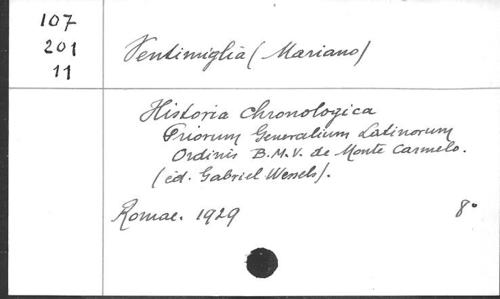 107
201
11
Ventimiglia (Mariano)
Historia Chronologica
Priorum Generalium Latinorum
Ordinis B.M.V. de Monte Carmelo.
(ed. Gabriel Wessels).
Romae. 1929 8°